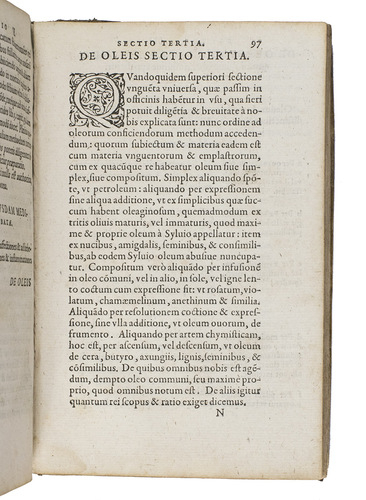 SECTIO TERTIA. 97
DE OLEIS SECTIO TERTIA.
QVandoquidem superiori sectione
vnguẽta vniuersa, quæ passim in
officinis habẽtur in vsu, qua fieri
potuit diligẽtia & breuitate à no-
bis explicata sunt: nunc ordine ad
oleorum conficiendorum methodum acceden-
dum: quorum subiectum & materia eadem est
cum materia vnguentorum & emplastrorum,
cum ex quacũque re habeatur oleum siue sim-
plex, siue compositum. Simplex aliquando spõ-
te, vt petroleum: aliquando per expressionem
sine aliqua additione, vt ex simplicibus quæ suc-
cum habent oleaginosum, quemadmodum ex
tritis oliuis maturis, vel immaturis, quod maxi-
mè & proprie oleum à Syluio appellatur: item
ex nucibus, amigdalis, seminibus, & consimili-
bus, ab eodem Syluio oleum abusiue nuncupa-
tur. Compositum verò aliquãdo per infusionẽ
in oleo cõmuni, vel in alio, in sole, vel igne len-
to coctum cum expressione fit: vt rosatum, vio-
latum, chamæmelinum, anethinum & similia.
Aliquãdo per resolutionem coctione & expres-
sione, sine vlla additione, vt oleum ouorum, de
frumento. Aliquando per artem chymisticam,
hoc est, per ascensum, vel descensum, vt oleum
de cera, butyro, axungiis, lignis, seminibus, &
cõsimilibus. De quibus omnibus nobis est agẽ-
dum, dempto oleo communi, seu maximè pro-
prio, quod omnibus notum est. De aliis igitur
quantum rei scopus & ratio exiget dicemus.
N
DE OLEIS